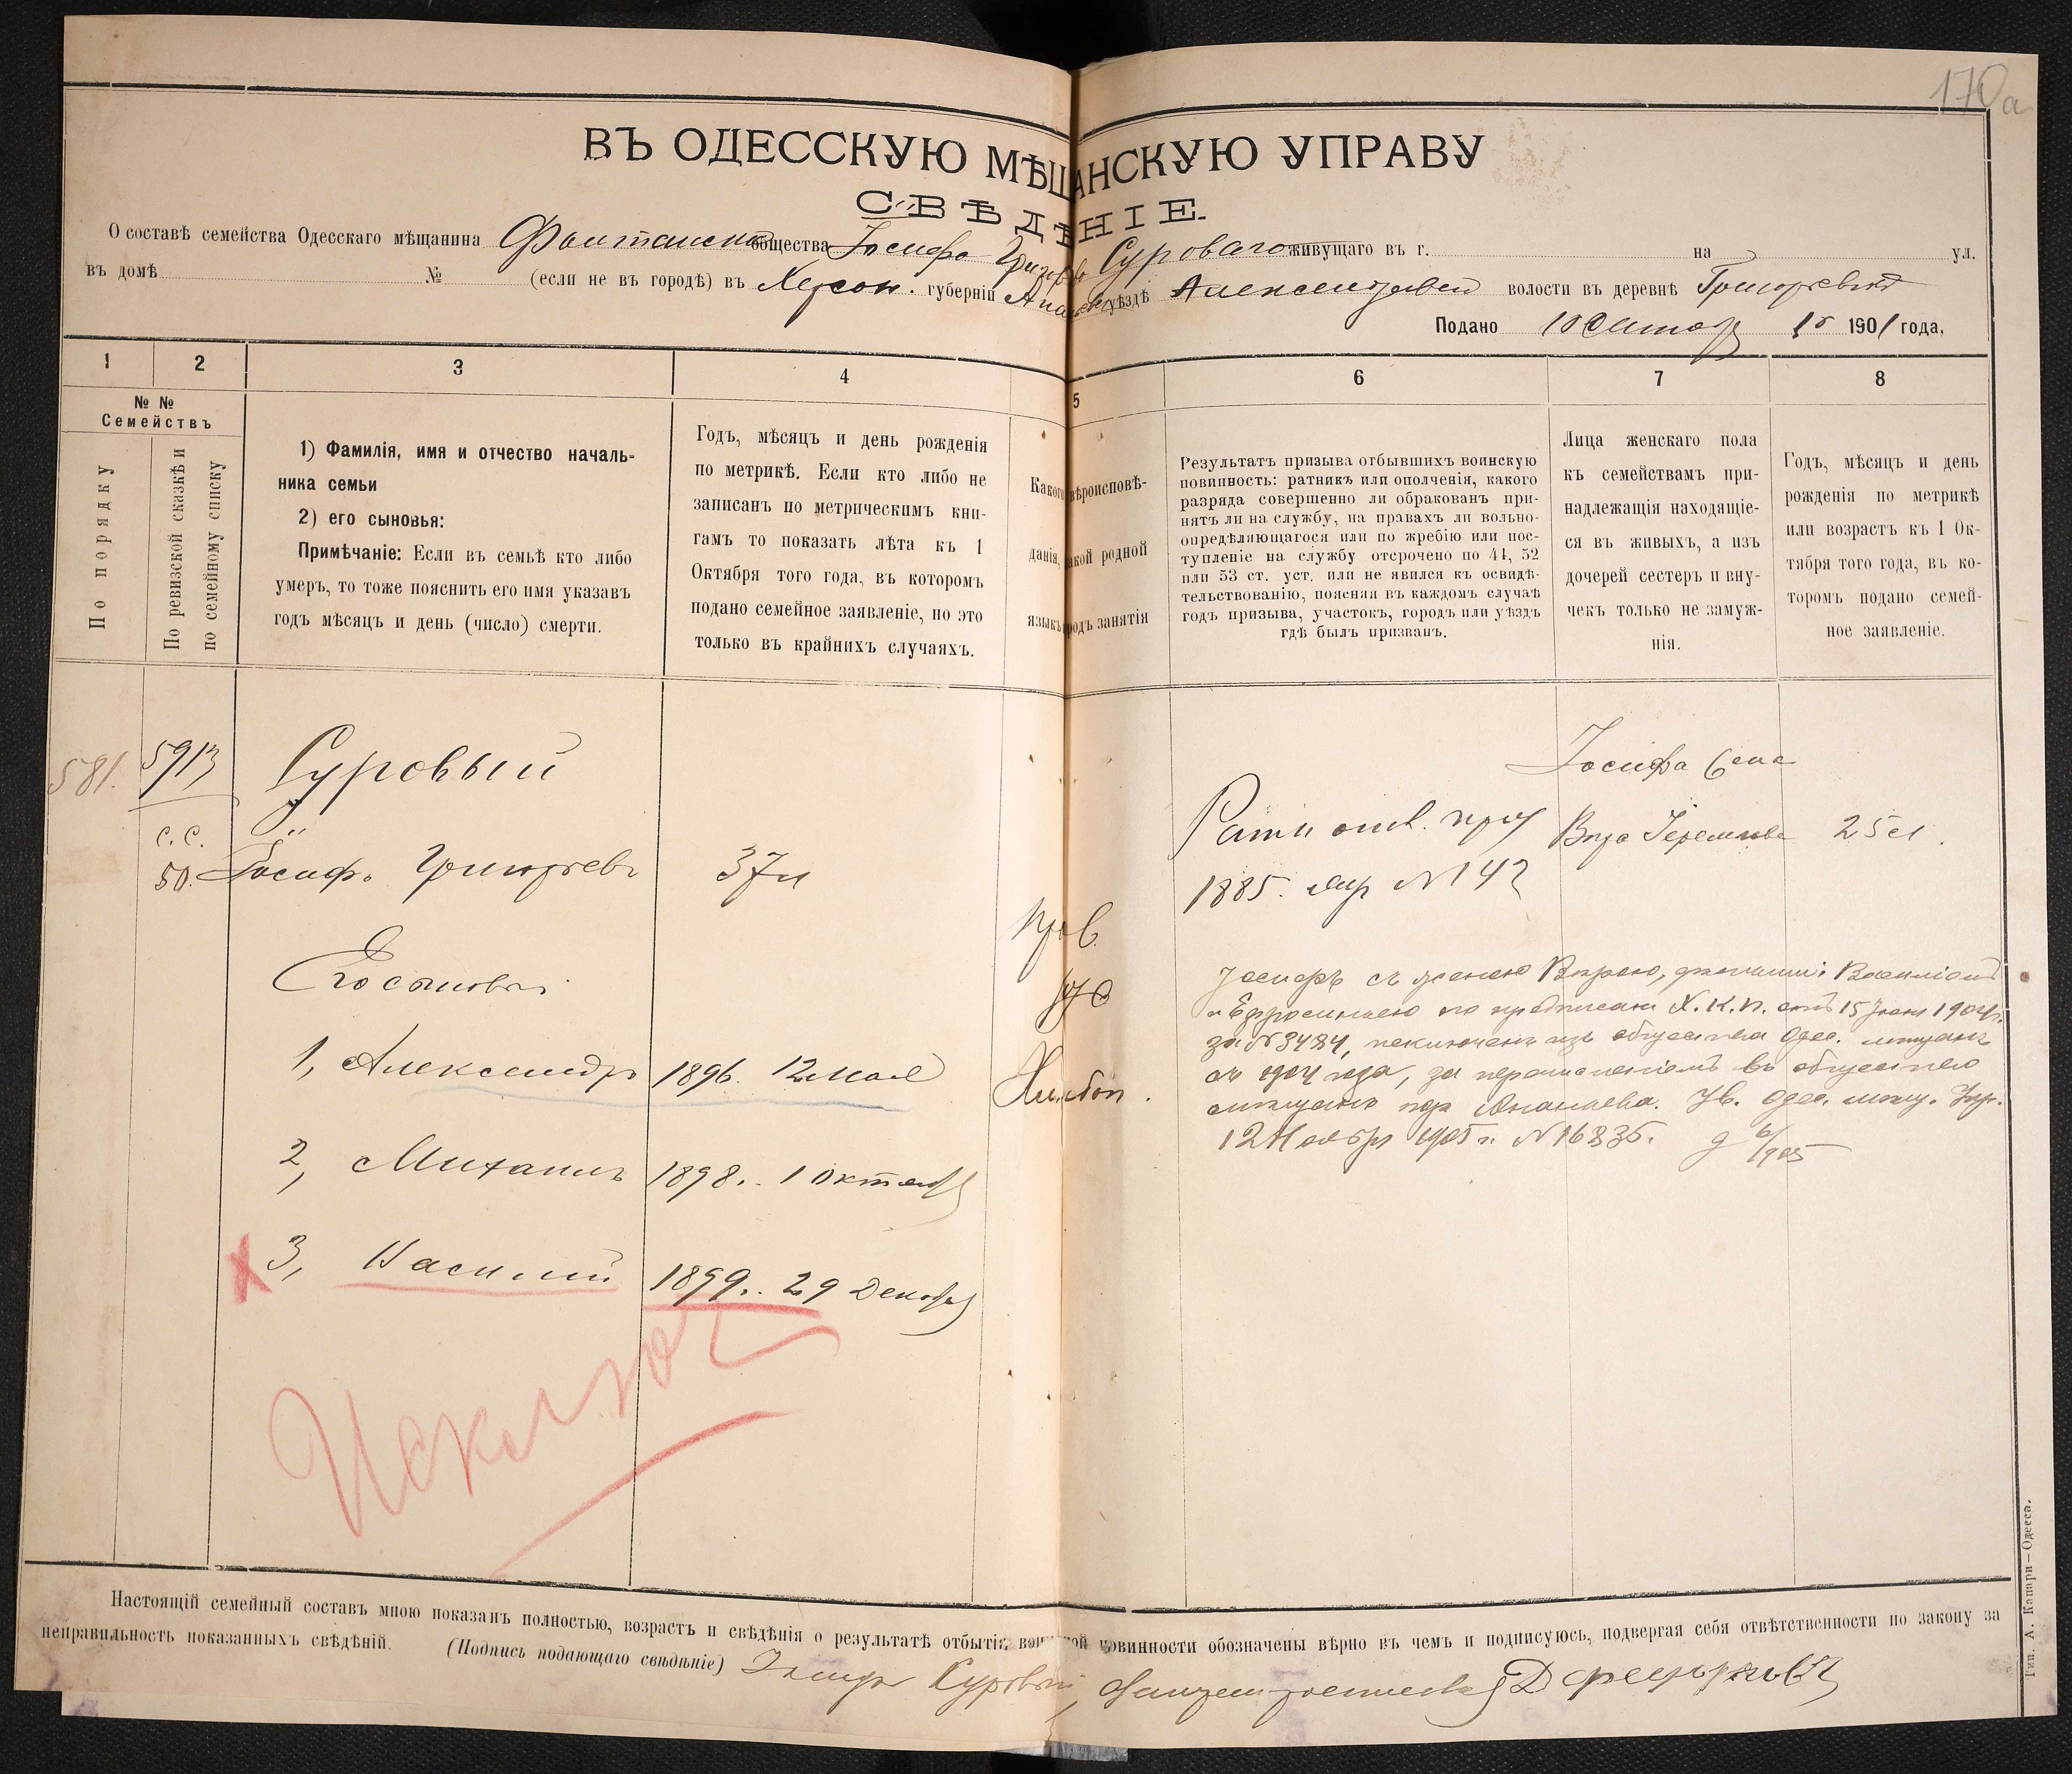 170а
ВЪ ОДЕССКУЮ МѢЩАНСКУЮ УПРАВУ
СВѢДѢНІЕ.
О составѣ семейства Одесскаго мѣщанина Фонтанск общества Іосифа Григорьев Суроваго живущаго въ г. на ул.
въ домѣ № (если не въ городѣ) въ Херсон. губерніи Анан уѣздѣ волости въ деревнѣ
Подано 10 1901 года,
1 2 3 4 5 6 7 8
№ №
Семействъ
По порядку
По ревизской сказкѣ и
по семейному списку
1) Фамилія, имя и отчество началь-
ника семьи
2) его сыновья:
Примѣчаніе: Если въ семьѣ кто либо
умеръ, то тоже пояснить его имя указавъ
годъ мѣсяцъ и день (число) смерти.
Годъ, мѣсяцъ и день рожденія
по метрикѣ. Если кто либо не
записанъ по метрическимъ кни-
гамъ то показать лѣта къ 1
Октября того года, въ которомъ
подано семейное заявленіе, но это
только въ крайнихъ случаяхъ.
Какого вѣроисповѣ-
данія, какой родной
языкъ родъ занятія
Результатъ призыва отбывшихъ воинскую
повинность: ратникъ или ополченія, какого
разряда совершенно ли обракованъ при-
нятъ ли на службу, на правахъ ли вольно-
опредѣляющагося или по жребію или пос-
тупленіе на службу отсрочено по 44, 52
или 53 ст. уст. или не явился къ освидѣ-
тельствованію, поясняя въ каждомъ случаѣ
годъ призыва, участокъ, городъ или уѣздъ
гдѣ былъ призванъ.
Лица женскаго пола
къ семействамъ при-
надлежащія находящіе-
ся въ живыхъ, а изъ
дочерей сестеръ и вну-
чекъ только не замуж-
нія.
Годъ, мѣсяцъ и день
рожденія по метрикѣ
или возрастъ къ 1 Ок-
тября того года, въ ко-
торомъ подано семей-
ное заявленіе.
581. 5913 Суровый
Іосифа жена
с. с.
50. Іосифъ Григорьевъ 37л
Ратн опол. приз
Вѣра Іеремиева 25л.
1885. жер №142
Прав.
Его сыновья:
рус
1, Александръ 1896. 12 Мая
Хлѣбоп.
2, Михаилъ 1898. 1 Октября
3, Василій 1899. 29 Декабря
Исключ
Іосифъ съ женою Вѣрою, дѣтьми: Василіемъ
и Ефросиньею по предписан Х.К.П. отъ 15 1904г.
за №3484, исключенъ изъ общества Одес. мѣщанъ
съ 1904 года, за перечисленіемъ въ общество
мѣщанъ гор Ананьева. Ув. Одес. мѣщ. Упр.
12 Ноября 1905 г. №16836.
Настоящій семейный составъ мною показанъ полностью, возрастъ и свѣдѣнія о результатѣ отбытія воинской повинности обозначены вѣрно въ чемъ и подписуюсь, подвергая себя отвѣтственности по закону за
неправильность показанныхъ свѣдѣній. (Подпись подающаго свѣдѣніе) Іосифъ Суровый
Тип. А. Капари—Одесса.